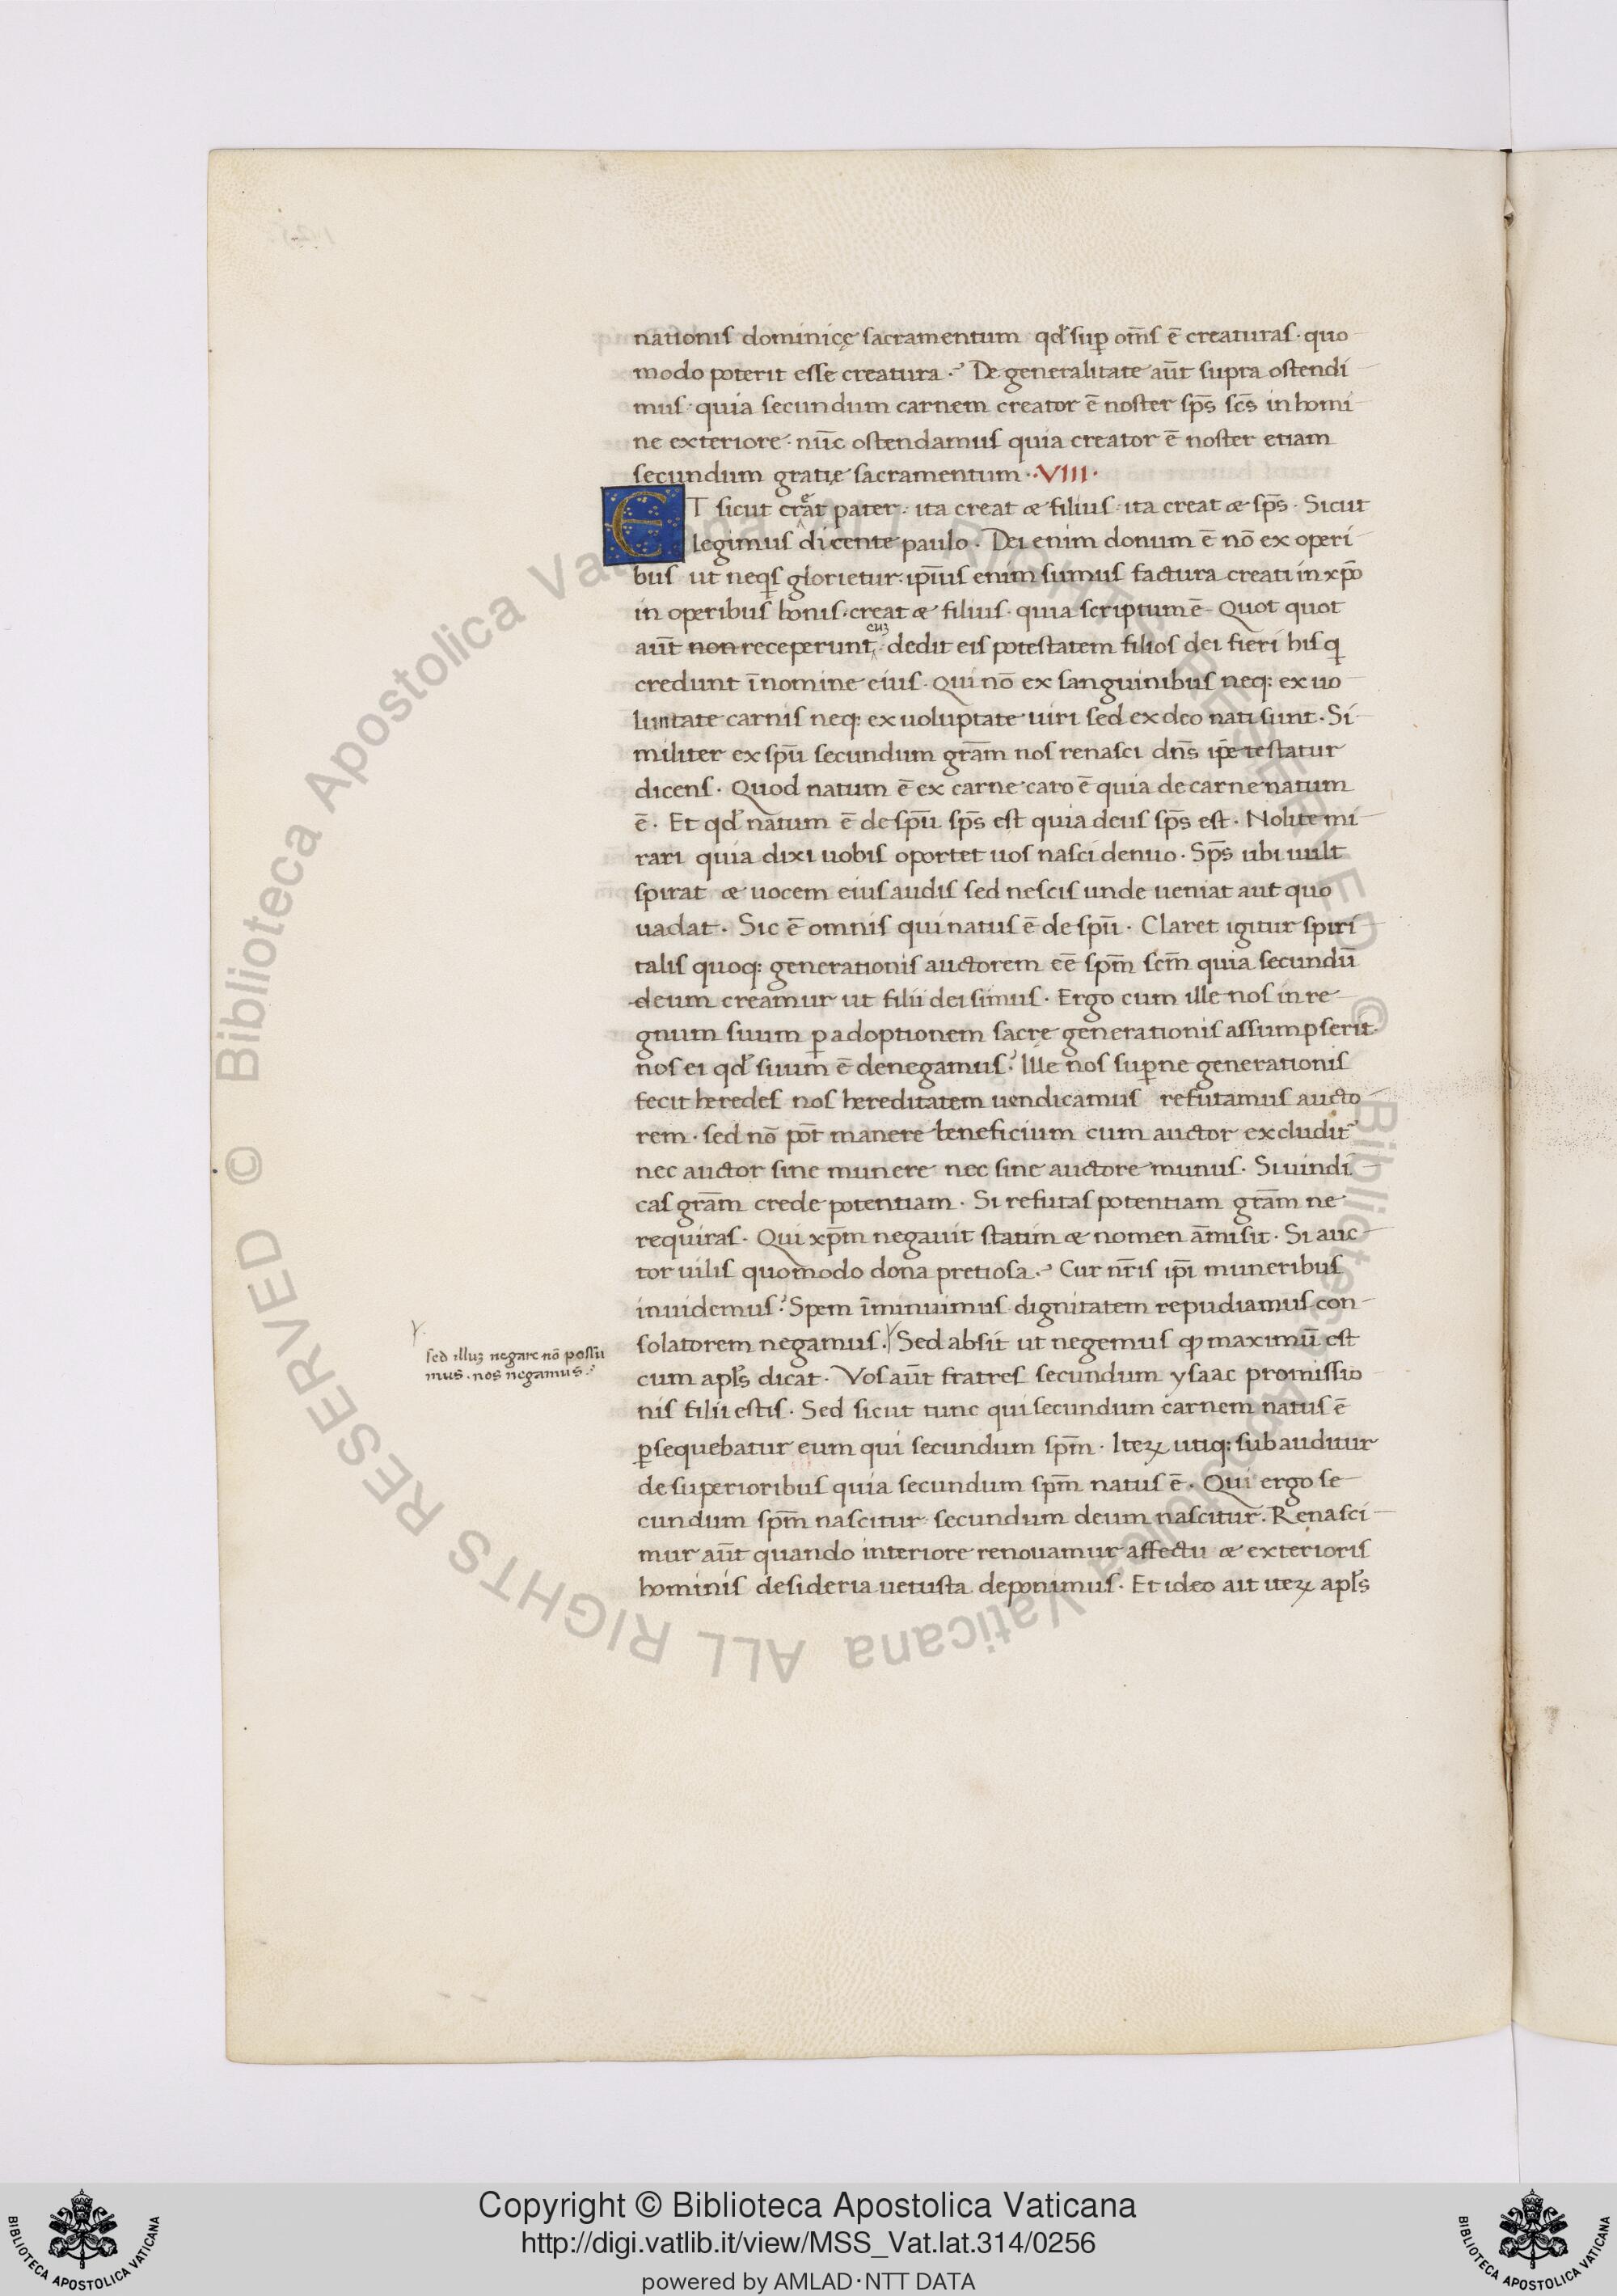 nationis dominicę sacramentum qđ sup̱ om̄s ē creaturas · quo
modo poterit esse creatura ·? De generalitate aūt supra ostendi
mus · quia secundum carnem creator ē noster sp̄s sc̄s in homi
ne exteriore · nūc ostendamus quia creator ē noster etiam
secundum gratię sacramentum · VIII ·
ET sicut creat pater · ita creat & filius · ita creat & sp̄s · Sicut
legimus dicente paulo · Dei enim donum ē nō ex operi
bus ut neqs glorietur · ip̄ius enim sumus factura creati in xp̄o
in operibus bonis · creat & filius · quia scriptum ē · Quot quot
aūt non receperunt cuz · dedit eis potestatem filios dei fieri his q
credunt ī nomine eius · Qui nō ex sanguinibus neq: ex uo
luntate carnis neq: ex uoluptate uiri sed ex deo nati sunt · Si
militer ex sp̄u secundum gr̄am nos renasci dn̄s ip̄e testatur
dicens · Quod natum ē ex carne caro ē quia de carne natum
ē · Et qđ natum ē de sp̄u sp̄s est quia deus sp̄s est · Nolite mi
rari quia dixi uobis oportet uos nasci denuo · Sp̄s ubi uult
spirat & uocem eius audis sed nescis unde ueniat aut quo
uadat · Sic ē omnis qui natus ē de sp̄u · Claret igitur spiri
talis quoq: generationis auctorem eē sp̄m sc̄m quia secundū
deum creamur ut filii dei simus · Ergo cum ille nos in re
gnum suum ꝑ adoptionem sacrę generationis assumpserit ·
nos ei qđ suum ē denegamus? Ille nos sup̱ne generationis
fecit heredes nos hereditatem uendicamus refutamus aucto
rem · sed nō pōt manere beneficium cum auctor excludit
nec auctor sine munere nec sine auctore munus · Si uindi
cas gr̄am crede potentiam · Si refutas potentiam gr̄am ne
requiras · Qui xp̄m negauit statim & nomen āmisit · Si auc
tor uilis quomodo dona pretiosa ·? Cur nr̄is ip̄i muneribus
inuidemus? Spem īminuimus dignitatem repudiamus con
solatorem negamus · Sed absit ut negemus ꝙ maximū est
sed illuz negare nō possu
mus · nos negamus ·?
cum apl̄s dicat · Vos aūt fratres secundum ysaac promissio
nis filii estis · Sed sicut tunc qui secundum carnem natus ē
ꝑsequebatur eum qui secundum sp̄m · Iteꝝ utiq: subauditur
de superioribus quia secundum sp̄m natus ē · Qui ergo se
cundum sp̄m nascitur · secundum deum nascitur · Renasci
mur aūt quando interiore renouamur affectu & exterioris
hominis desideria uetusta deponimus · Et ideo ait iteꝝ apl̄s
© Biblioteca Apostolica Vaticana ALL RIGHTS RESERVED
© Biblioteca Apostolica Vaticana ALL RIGHTS RESERVED
Copyright © Biblioteca Apostolica Vaticana
http://digi.vatlib.it/view/MSS_Vat.lat.314/0256
powered by AMLAD·NTT DATA
BIBLIOTECA APOSTOLICA VATICANA
BIBLIOTECA APOSTOLICA VATICANA